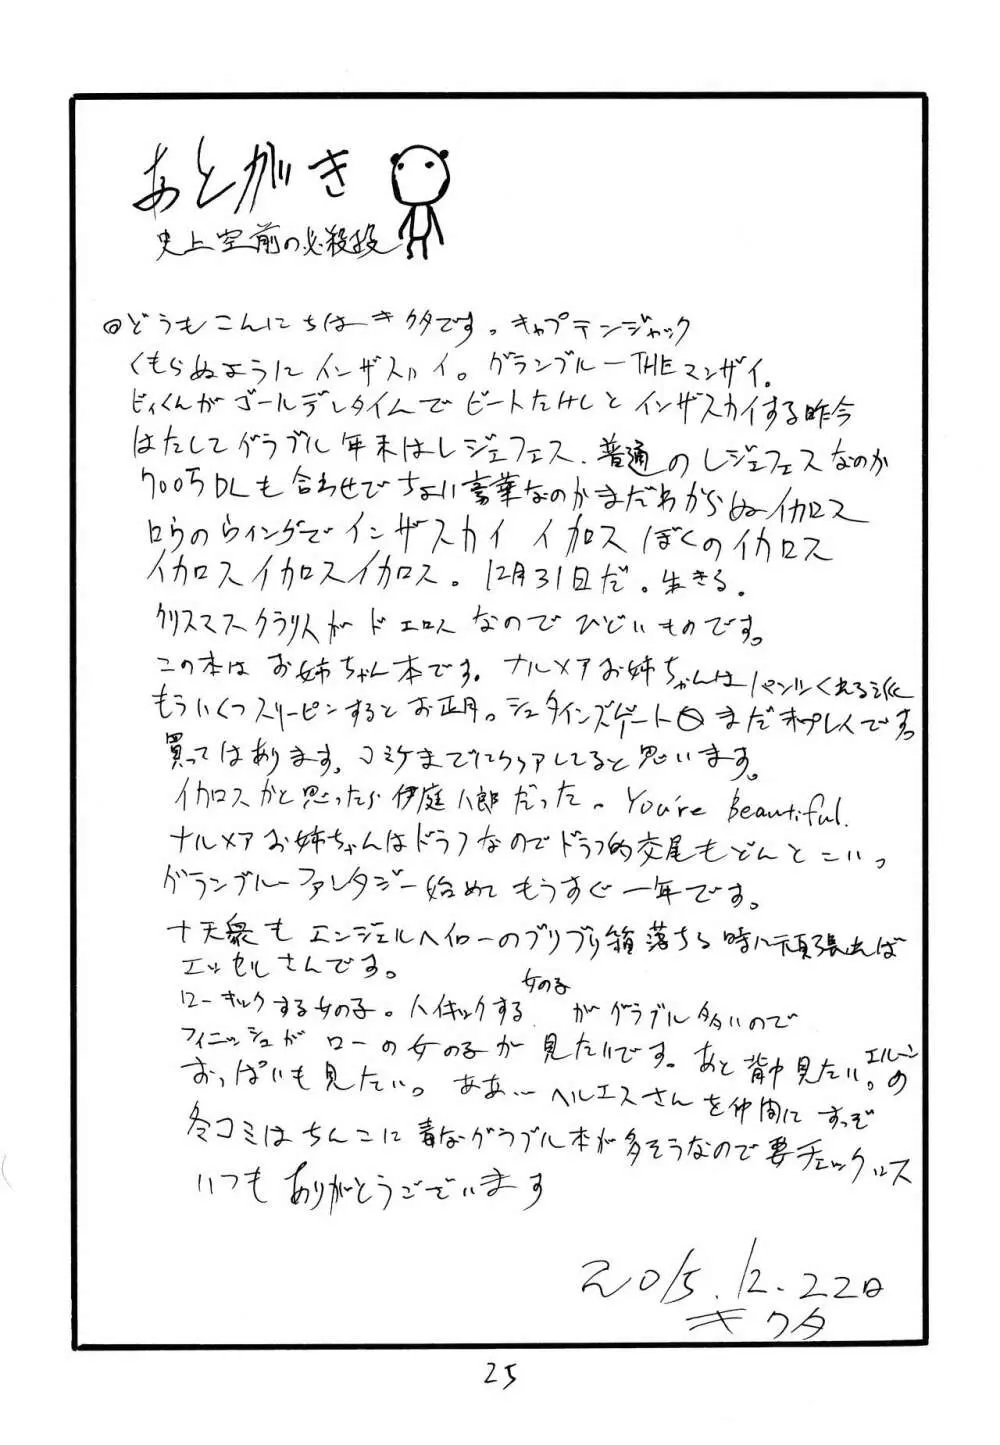 あとがき
史上空前の必殺技
◎どうもこんにちはキクタです。キャプテンジャック
くもらぬようにインザスハイ。グランブルーTHEマンザイ。
ビィくんがゴールデンタイムでビートたけしとインザスカイする昨今
はたしてグラブル年末はレジェフェス、普通のレジェフェスなのか
700万DLも合わせでちょい豪華なのかまだわからぬイカロス
ロウのウィングでインザスカイ イカロス ぼくのイカロス
イカロスイカロスイカロス。12月31日だ。生きる。
クリスマスクラリスがドエロスなのでひどいものです。
この本はお姉ちゃん本です。ナルメアお姉ちゃんはパンツくれる派
もういくつスリーピンするとお正月。シュタインズゲート0まだ未プレイです。
買ってはあります。コミケまでにクリアしてると思います。
イカロスかと思ったら伊庭八郎だった。You're Beautiful.
ナルメアお姉ちゃんはドラフなのでドラフ的交尾もどんとこいっ
グランブルーファンタジー始めてもうすぐ一年です。
十天衆もエンジェルヘイローのブリブリ箱落ちる時に頑張れば
エッセルさんです。
ローキックする女の子。ハイキックする女の子がグラブル多いので
フィニッシュがローの女の子が見たいです。あと背中見たい。エルーンの
おっぱいも見たい。ああ…ヘルエスさんを仲間にすっぞ
冬コミはちんこに毒なグラブル本が多そうなので要チェックロス
いつもありがとうございます
2015.12.22日
キクタ
25